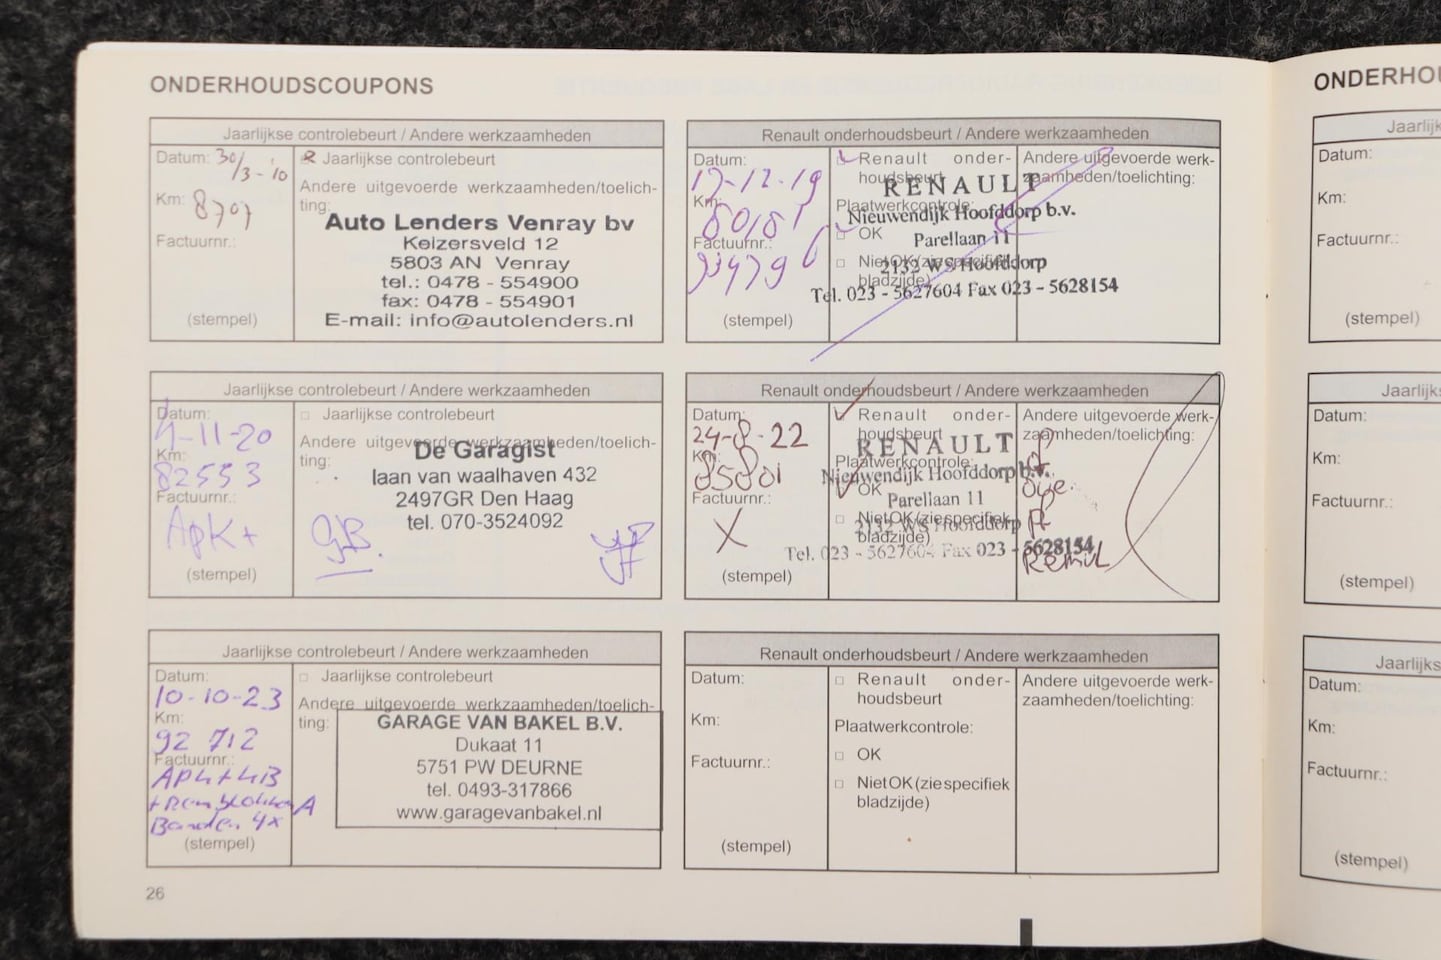 ONDERHOUDSCOUPONS
Jaarlijkse controlebeurt / Andere werkzaamheden
Datum: 30/3-10
Km: 8707
Factuurnr.:
(stempel)
Jaarlijkse controlebeurt
Andere uitgevoerde werkzaamheden/toelich-
ting:
Auto Lenders Venray bv
Keizersveld 12
5803 AN Venray
tel.: 0478 - 554900
fax: 0478 - 554901
E-mail: info@autolenders.nl
Renault onderhoudsbeurt / Andere werkzaamheden
Datum:
17-12-19
Km:
80181
Factuurnr.:
(stempel)
Renault onder-
houdsbeurt
Plaatwerkcontrole:
OK
Niet OK (zie specifiek
bladzijde)
Andere uitgevoerde werk-
zaamheden/toelichting:
RENAULT
Nieuwendijk Hoofddorp b.v.
Parellaan 11
2132 WS Hoofddorp
Tel. 023 - 5627604 Fax 023 - 5628154
Jaarlijkse controlebeurt / Andere werkzaamheden
Datum:
4-11-20
Km:
82553
Factuurnr.:
APK +
(stempel)
Jaarlijkse controlebeurt
Andere uitgevoerde werkzaamheden/toelich-
ting:
De Garagist
laan van waalhaven 432
2497GR Den Haag
tel. 070-3524092
GB.
Renault onderhoudsbeurt / Andere werkzaamheden
Datum:
24-8-22
Km:
85801
Factuurnr.:
X
(stempel)
Renault onder-
houdsbeurt
Plaatwerkcontrole:
OK
Niet OK (zie specifiek
bladzijde)
Andere uitgevoerde werk-
zaamheden/toelichting:
RENAULT
Nieuwendijk Hoofddorp b.v.
Parellaan 11
2132 WS Hoofddorp
Tel. 023 - 5627604 Fax 023 - 5628154
Jaarlijkse controlebeurt / Andere werkzaamheden
Datum:
10-10-23
Km:
92 712
Factuurnr.:
APK + GB
+ Remblokken A
Banden 4x
(stempel)
Jaarlijkse controlebeurt
Andere uitgevoerde werkzaamheden/toelich-
ting:
GARAGE VAN BAKEL B.V.
Dukaat 11
5751 PW DEURNE
tel. 0493-317866
www.garagevanbakel.nl
Renault onderhoudsbeurt / Andere werkzaamheden
Datum:
Km:
Factuurnr.:
(stempel)
Renault onder-
houdsbeurt
Plaatwerkcontrole:
OK
Niet OK (zie specifiek
bladzijde)
Andere uitgevoerde werk-
zaamheden/toelichting:
26
ONDERHOU
Jaarlijk
Datum:
Km:
Factuurnr.:
(stempel)
Jaarlijks
Datum:
Km:
Factuurnr.:
(stempel)
Jaarlijks
Datum:
Km:
Factuurnr.:
(stempel)